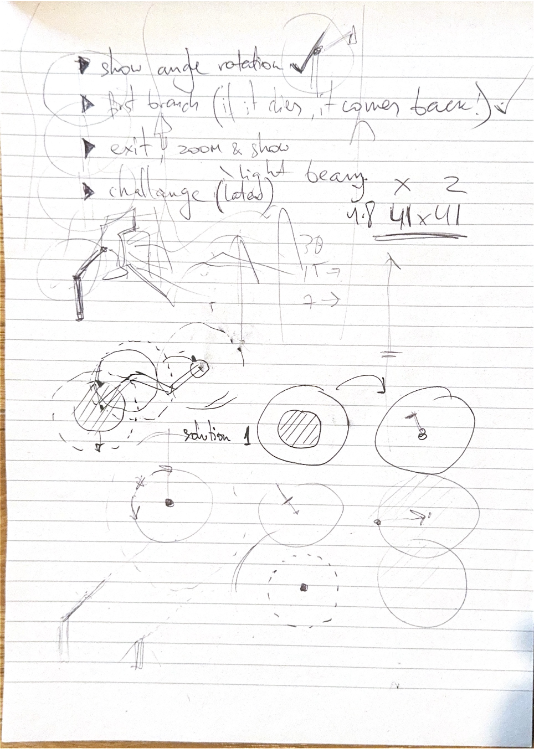 show ange rotation ✓
first branch (if it dies, it comes back!) ✓
exit, zoom & show
light beam
challange (later)
x 2
1.8 41x41
30
7 →
solution 1